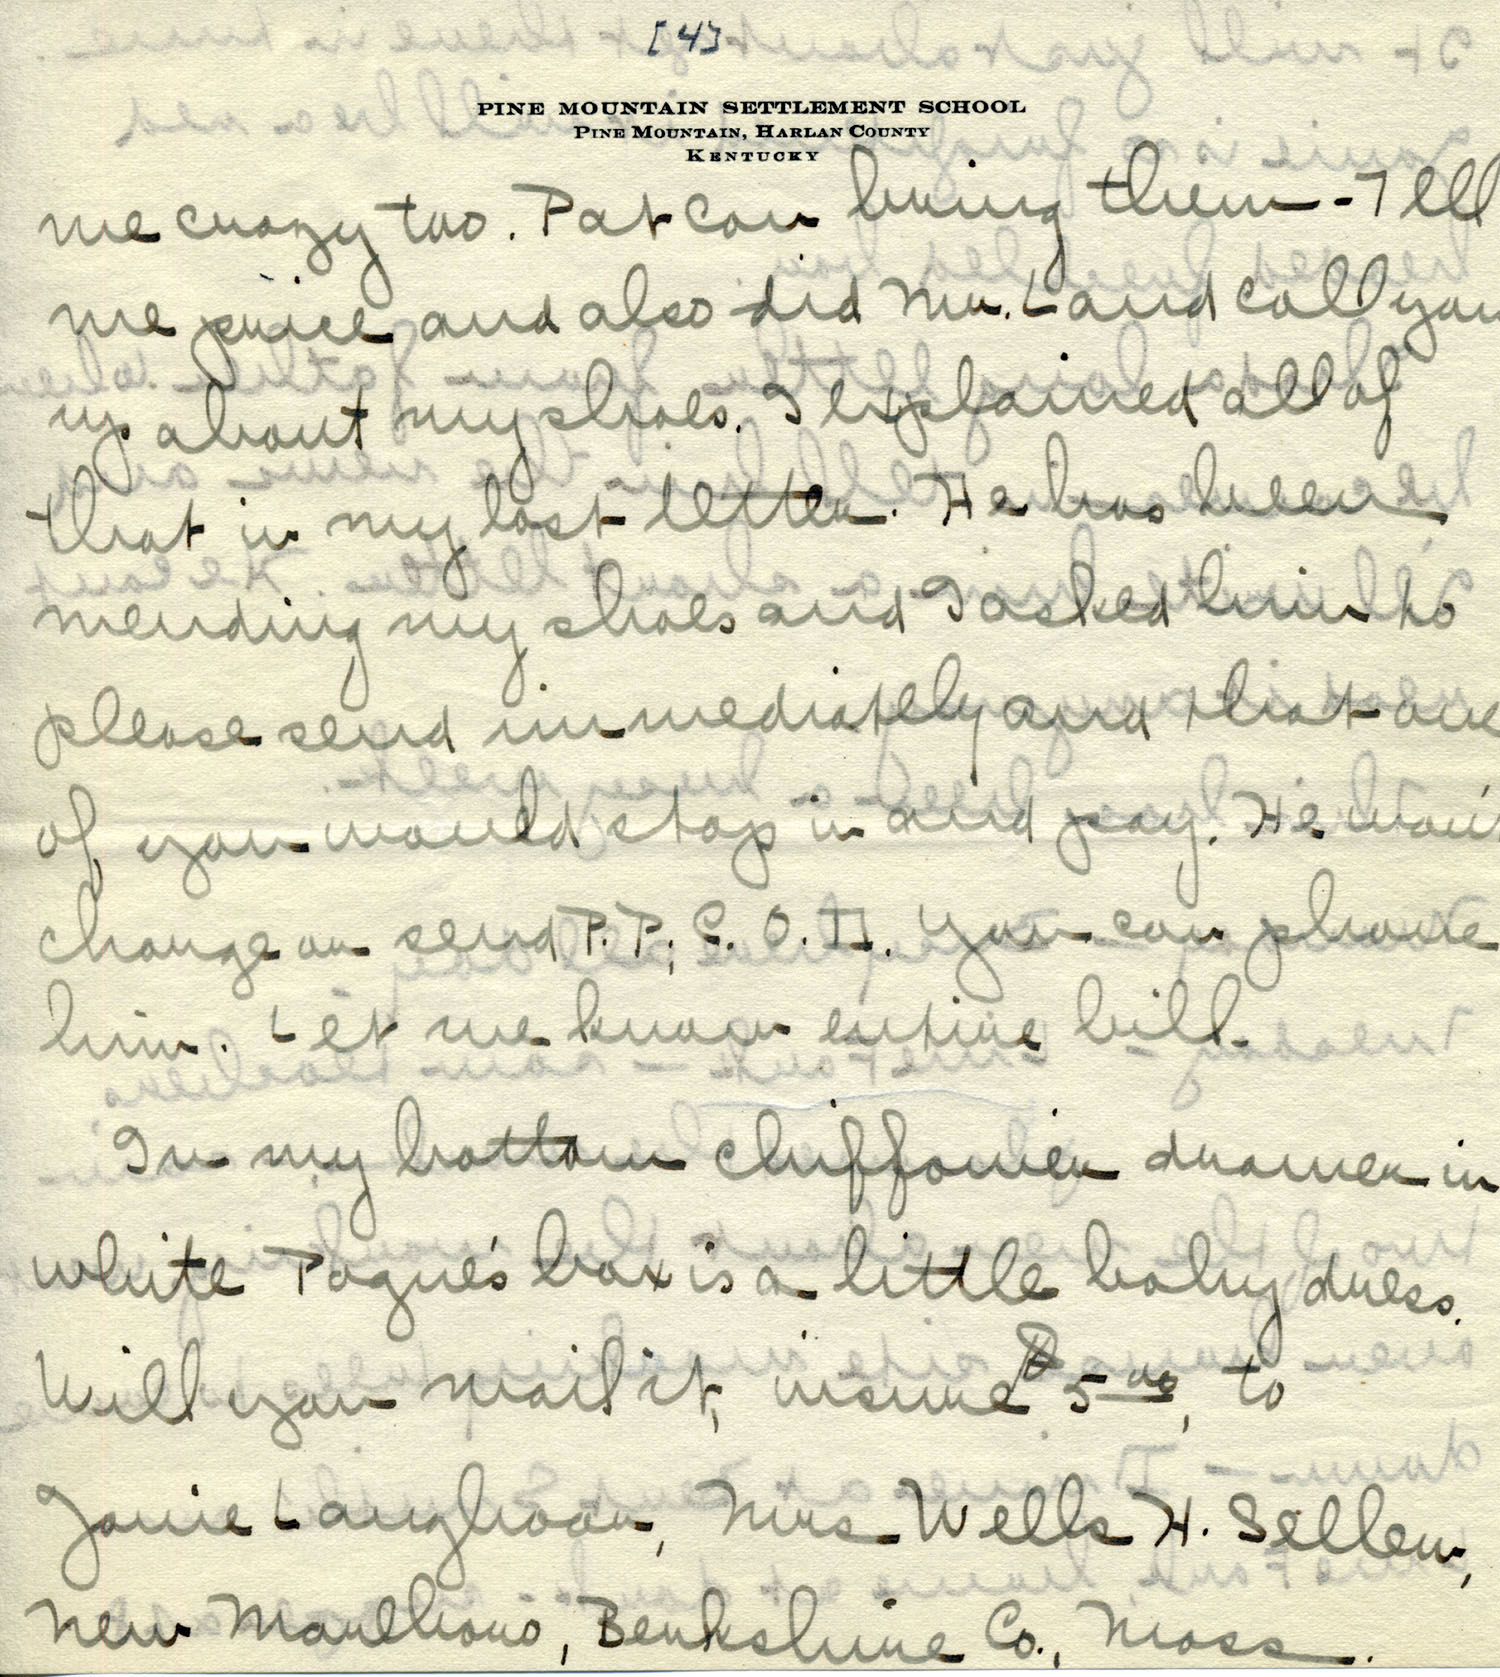 [4]
PINE MOUNTAIN SETTLEMENT SCHOOL
PINE MOUNTAIN, HARLAN COUNTY
KENTUCKY
me crazy too. Pat can bring them - Tell
me price and also did Mr. Land call you
up about my shoes. I explained all of
that in my last letter. He has been
mending my shoes and I asked him to
please send immediately and that one
of you would stop in and pay. He won't
charge or send P.P., C.O.D. You can phone
him. Let me know entire bill.
In my bottom chiffonier drawer in
white Pogue's box is a little baby dress.
Will you mail it, insure $5.00, to
Janie Langhoar, Mrs Wells H. Sellew,
New Marlboro, Berkshire Co., Mass.